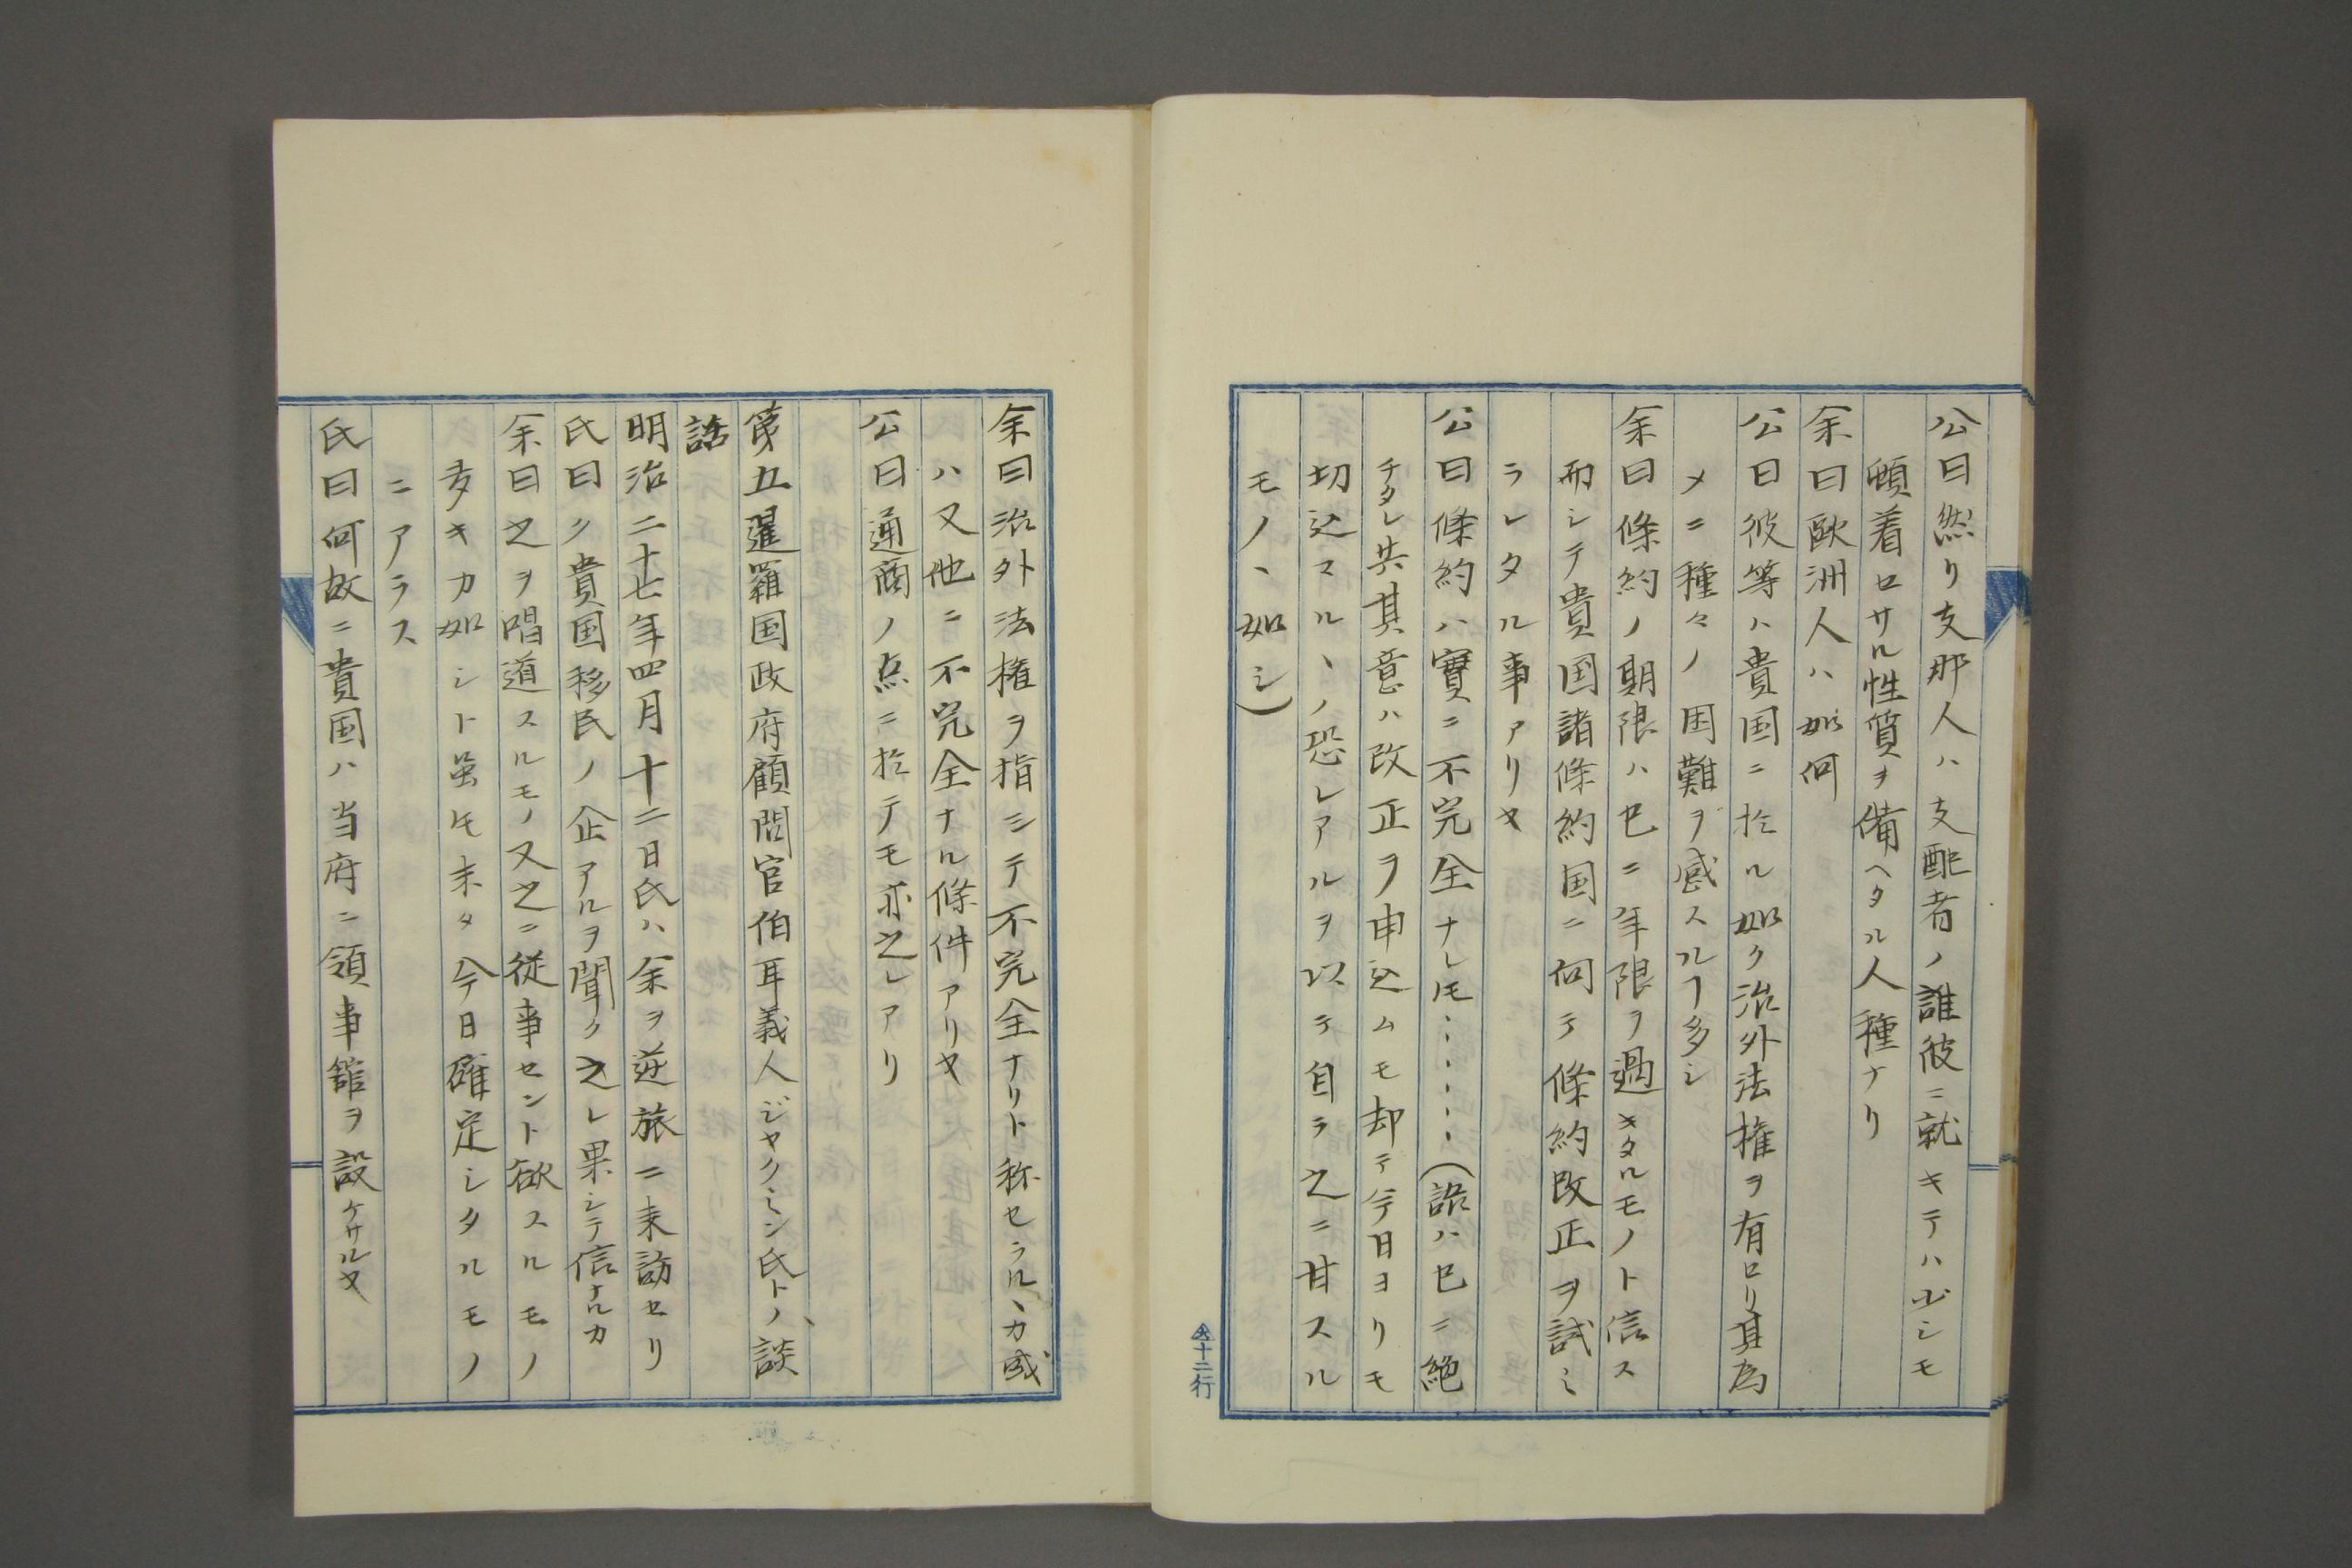 公曰然リ支那人ハ支配者ノ誰彼ニ就キテハ少シモ
頓着セサル性質ヲ備ヘタル人種ナリ
余曰欧洲人ハ如何
公曰彼等ハ貴国ニ於ル如ク治外法権ヲ有セリ其為
メニ種々ノ困難ヲ感スルヿ多シ
余曰條約ノ期限ハ已ニ年限ヲ過キタルモノト信ス
而シテ貴国諸條約国ニ向テ條約改正ヲ試ミ
ラレタル事アリヤ
公曰條約ハ實ニ不完全ナレ𪜈………(語ハ已ニ絶
チタレ共其意ハ改正ヲ申込ムモ却テ今日ヨリモ
切込マルヽノ恐レアルヲ以テ自ラ之ニ甘スル
モノヽ如シ)
仝十二行
余曰治外法権ヲ指シテ不完全ナリト称セラルヽカ或
ハ又他ニ不完全ナル條件アリヤ
公曰通商ノ点ニ於テモ亦之レアリ
第五暹羅国政府顧問官伯耳義人ジヤクミン氏トノ談
話
明治二十七年四月十二日氏ハ余ヲ逆旅ニ来訪セリ
氏曰ク貴国移民ノ企アルヲ聞ク之レ果シテ信ナルカ
余曰之ヲ唱道スルモノ又之ニ従事セント欲スルモノ
多キカ如シト虽𪜈未タ今日確定シタルモノ
ニアラス
氏曰何故ニ貴国ハ当府ニ領事舘ヲ設ケサルヤ